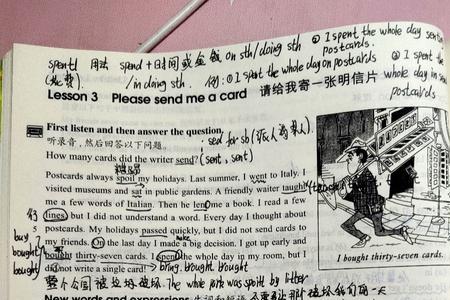 spent 用法 spend + 时间或金钱 on sth/doing sth ② I spent the whole day sending
postcards.
(花费) /in doing sth. 例: ① I spent the whole day on postcards ③ I spent the
whole day in sending
postcards
Lesson 3 Please send me a card 请给我寄一张明信片
First listen and then answer the question.
听录音,然后回答以下问题。
send for sb
How many cards did the writer send? (sent, sent)
Postcards always spoil my holidays. Last summer, I went to Italy. I
visited museums and sat in public gardens. A friendly waiter taught
me a few words of Italian. Then he lent me a book. I read a few
lines, but I did not understand a word. Every day I thought about
5 postcards. My holidays passed quickly, but I did not send cards to
make
my friends. On the last day I made a big decision. I got up early and
buy
bought bought thirty-seven cards. I spent the whole day in my room, but I
bought did not write a single card! bring. brought brought
I bought thirty-seven cards.
整个公园被垃圾 The whole park was spoilt by litter
New words and expressions 生词和短语